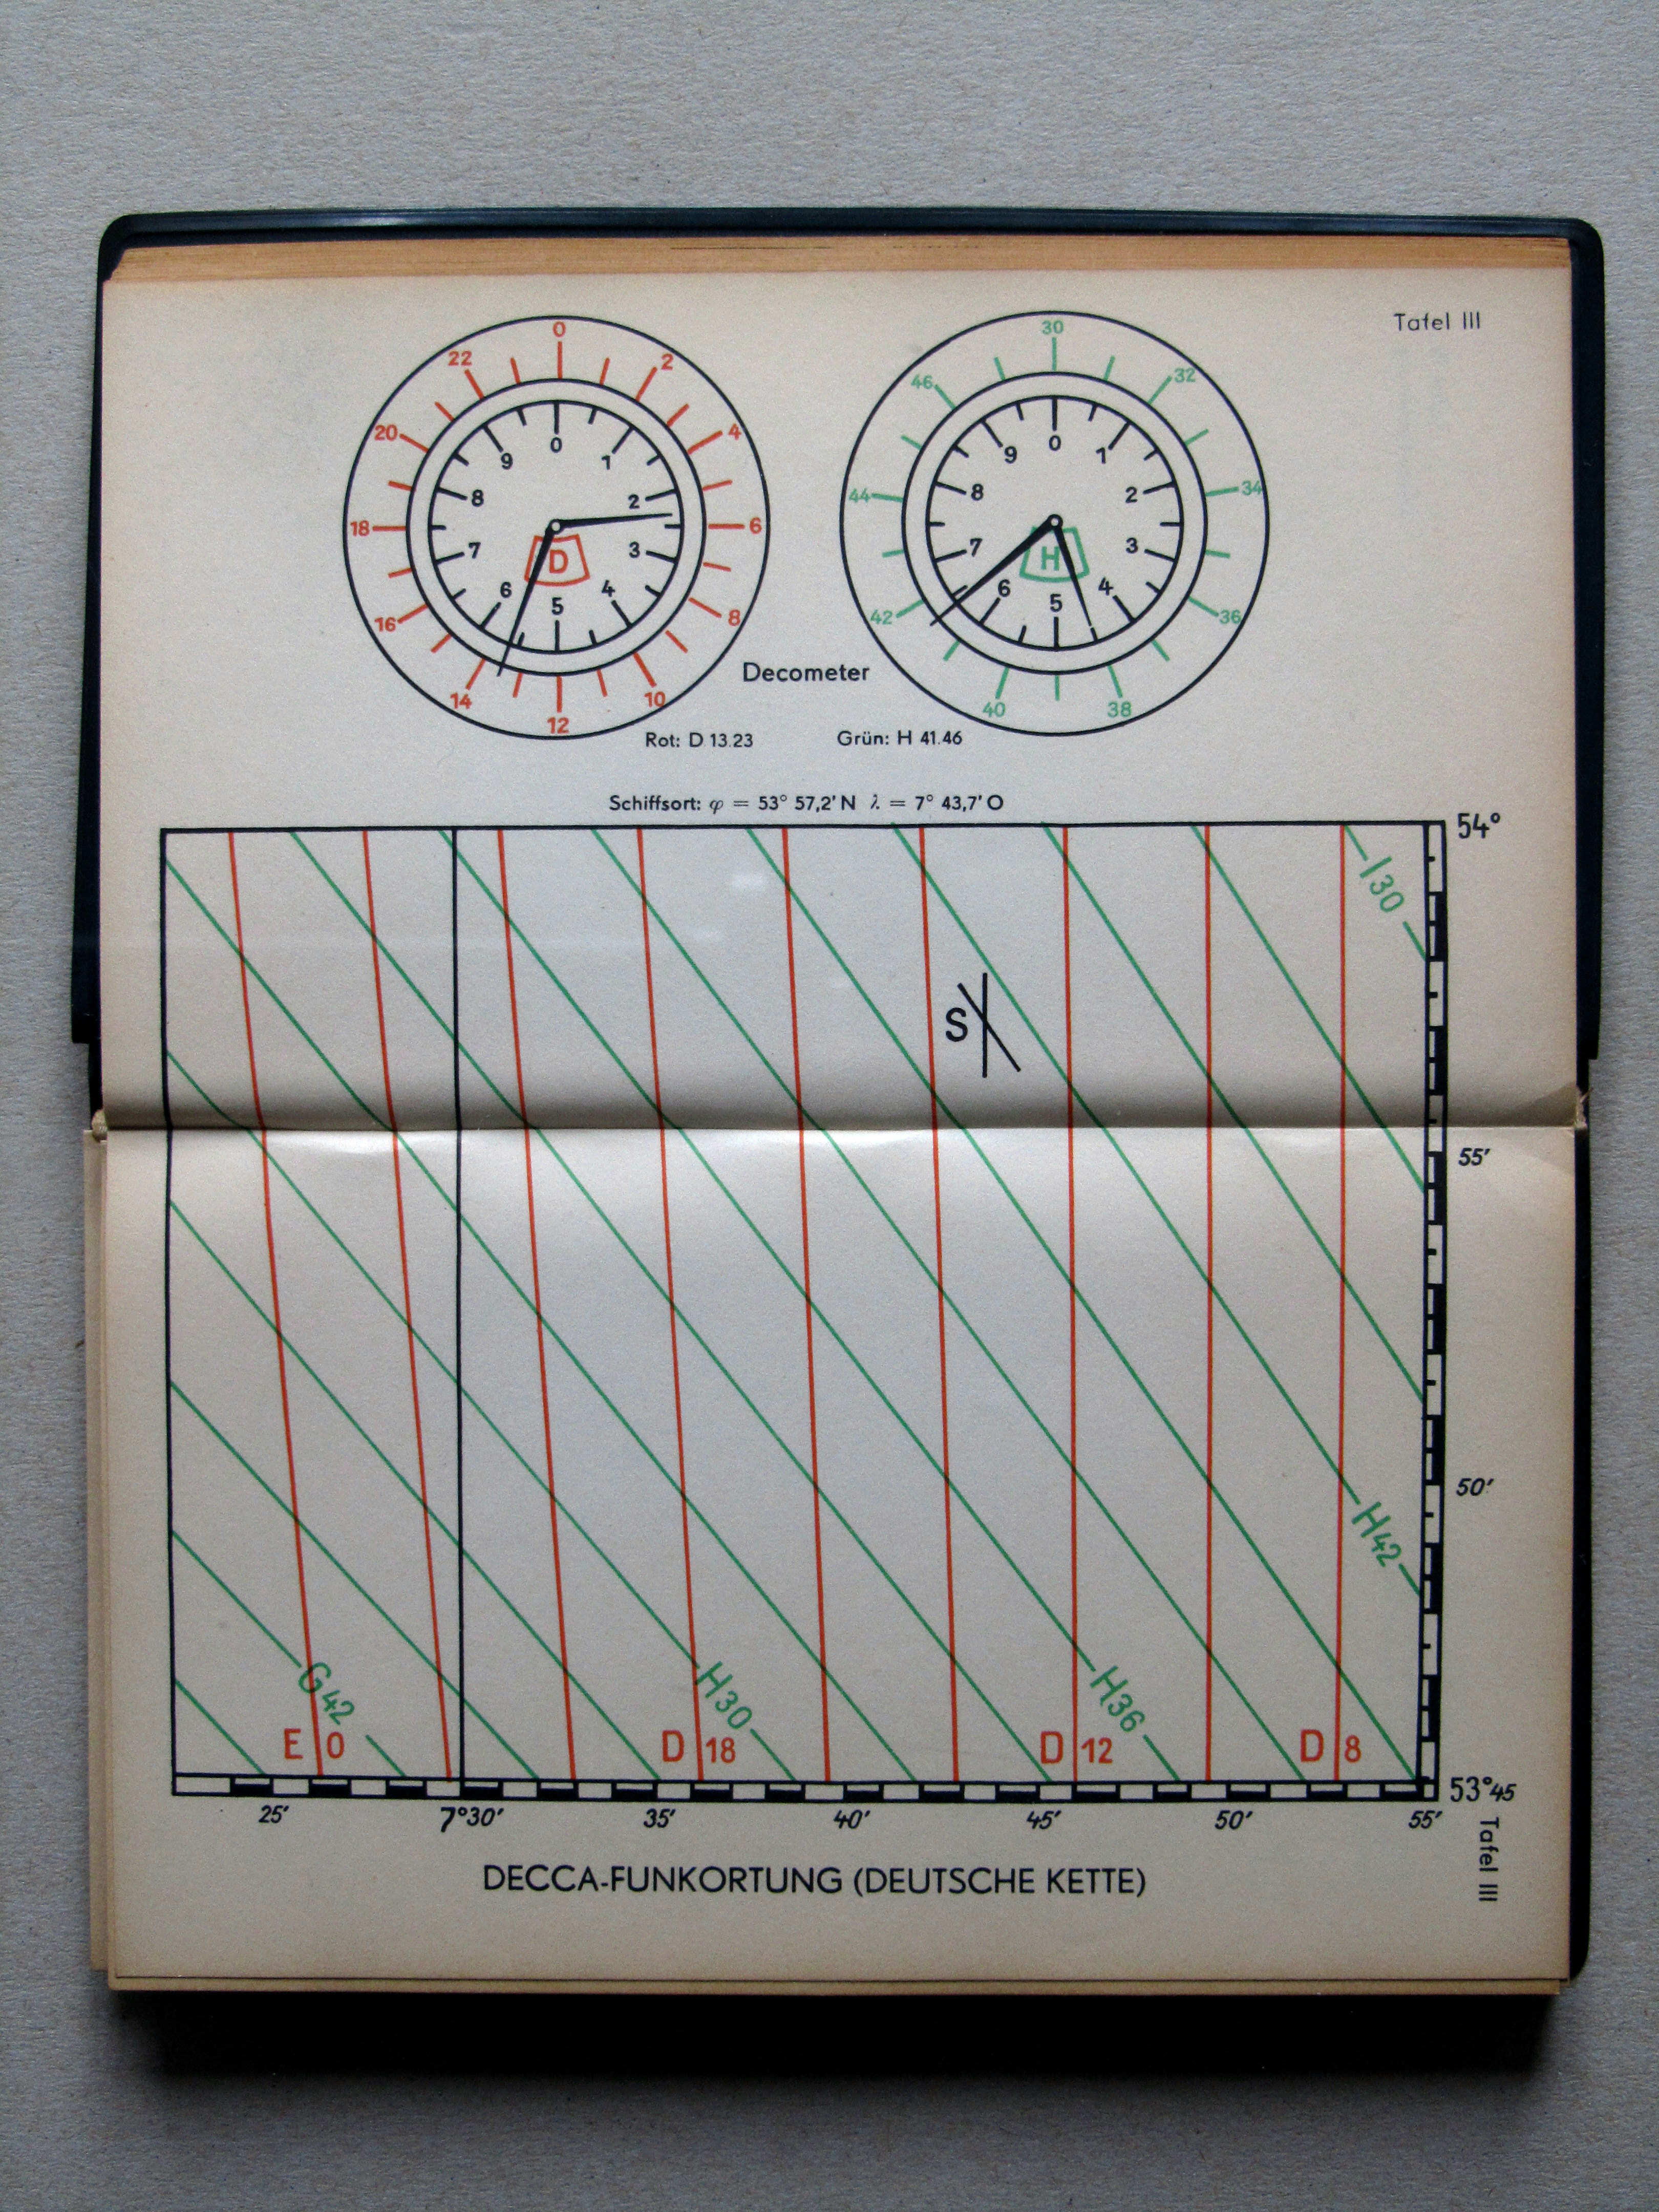 Tafel III
0
22 2
20 4
18 6
16 8
14 10
12
0
9 1
8 2
7 3
6 4
5
D
30
46 32
44 34
42 36
40 38
0
9 1
8 2
7 3
6 4
5
H
Decometer
Rot: D 13.23 Grün: H 41.46
Schiffsort: φ = 53° 57,2′ N λ = 7° 43,7′ O
54°
I 30
S
55′
50′
H42
G42
H30
H36
E 0
D 18
D 12
D 8
53°45
25′ 7°30′ 35′ 40′ 45′ 50′ 55′
Tafel III
DECCA-FUNKORTUNG (DEUTSCHE KETTE)